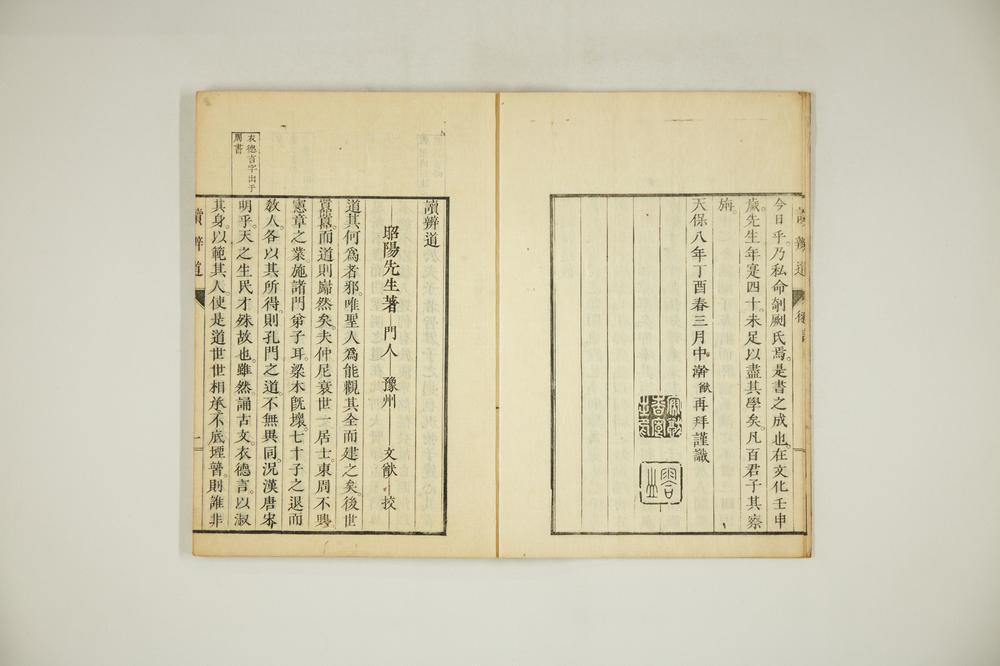 今日乎。乃私命剞劂氏焉。是書之成也。在文化壬申
歲。先生年寔四十。未足以盡其學矣。凡百君子其察
旃。
天保八年丁酉春三月中澣猷再拜謹識
讀辨道
讀辨道
昭陽先生著 門人 豫州 文猷 挍
道其何爲者邪。唯聖人爲能觀其全而建之矣。後世
囂囂。而道則巋然矣。夫仲尼衰世一居士。東周不興
憲章之業施諸門弟子耳。梁木既壞。七十子之退而
敎人。各以其所得。則孔門之道不無異同。況漢唐宋
明乎。天之生民才殊故也。雖然誦古文。衣德言。以淑
其身。以範其人。使是道世世相承。不底堙替。則誰非
衣德言字出于
周書
讀辨道
一